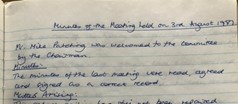 Minutes of the Meeting held on 3rd August 1987
Mr. Mike Pickering was welcomed to the Committee
by the Chairman.
Minutes
The minutes of the last meeting were read, agreed
and signed as a correct record.
Matters Arising.
not been received